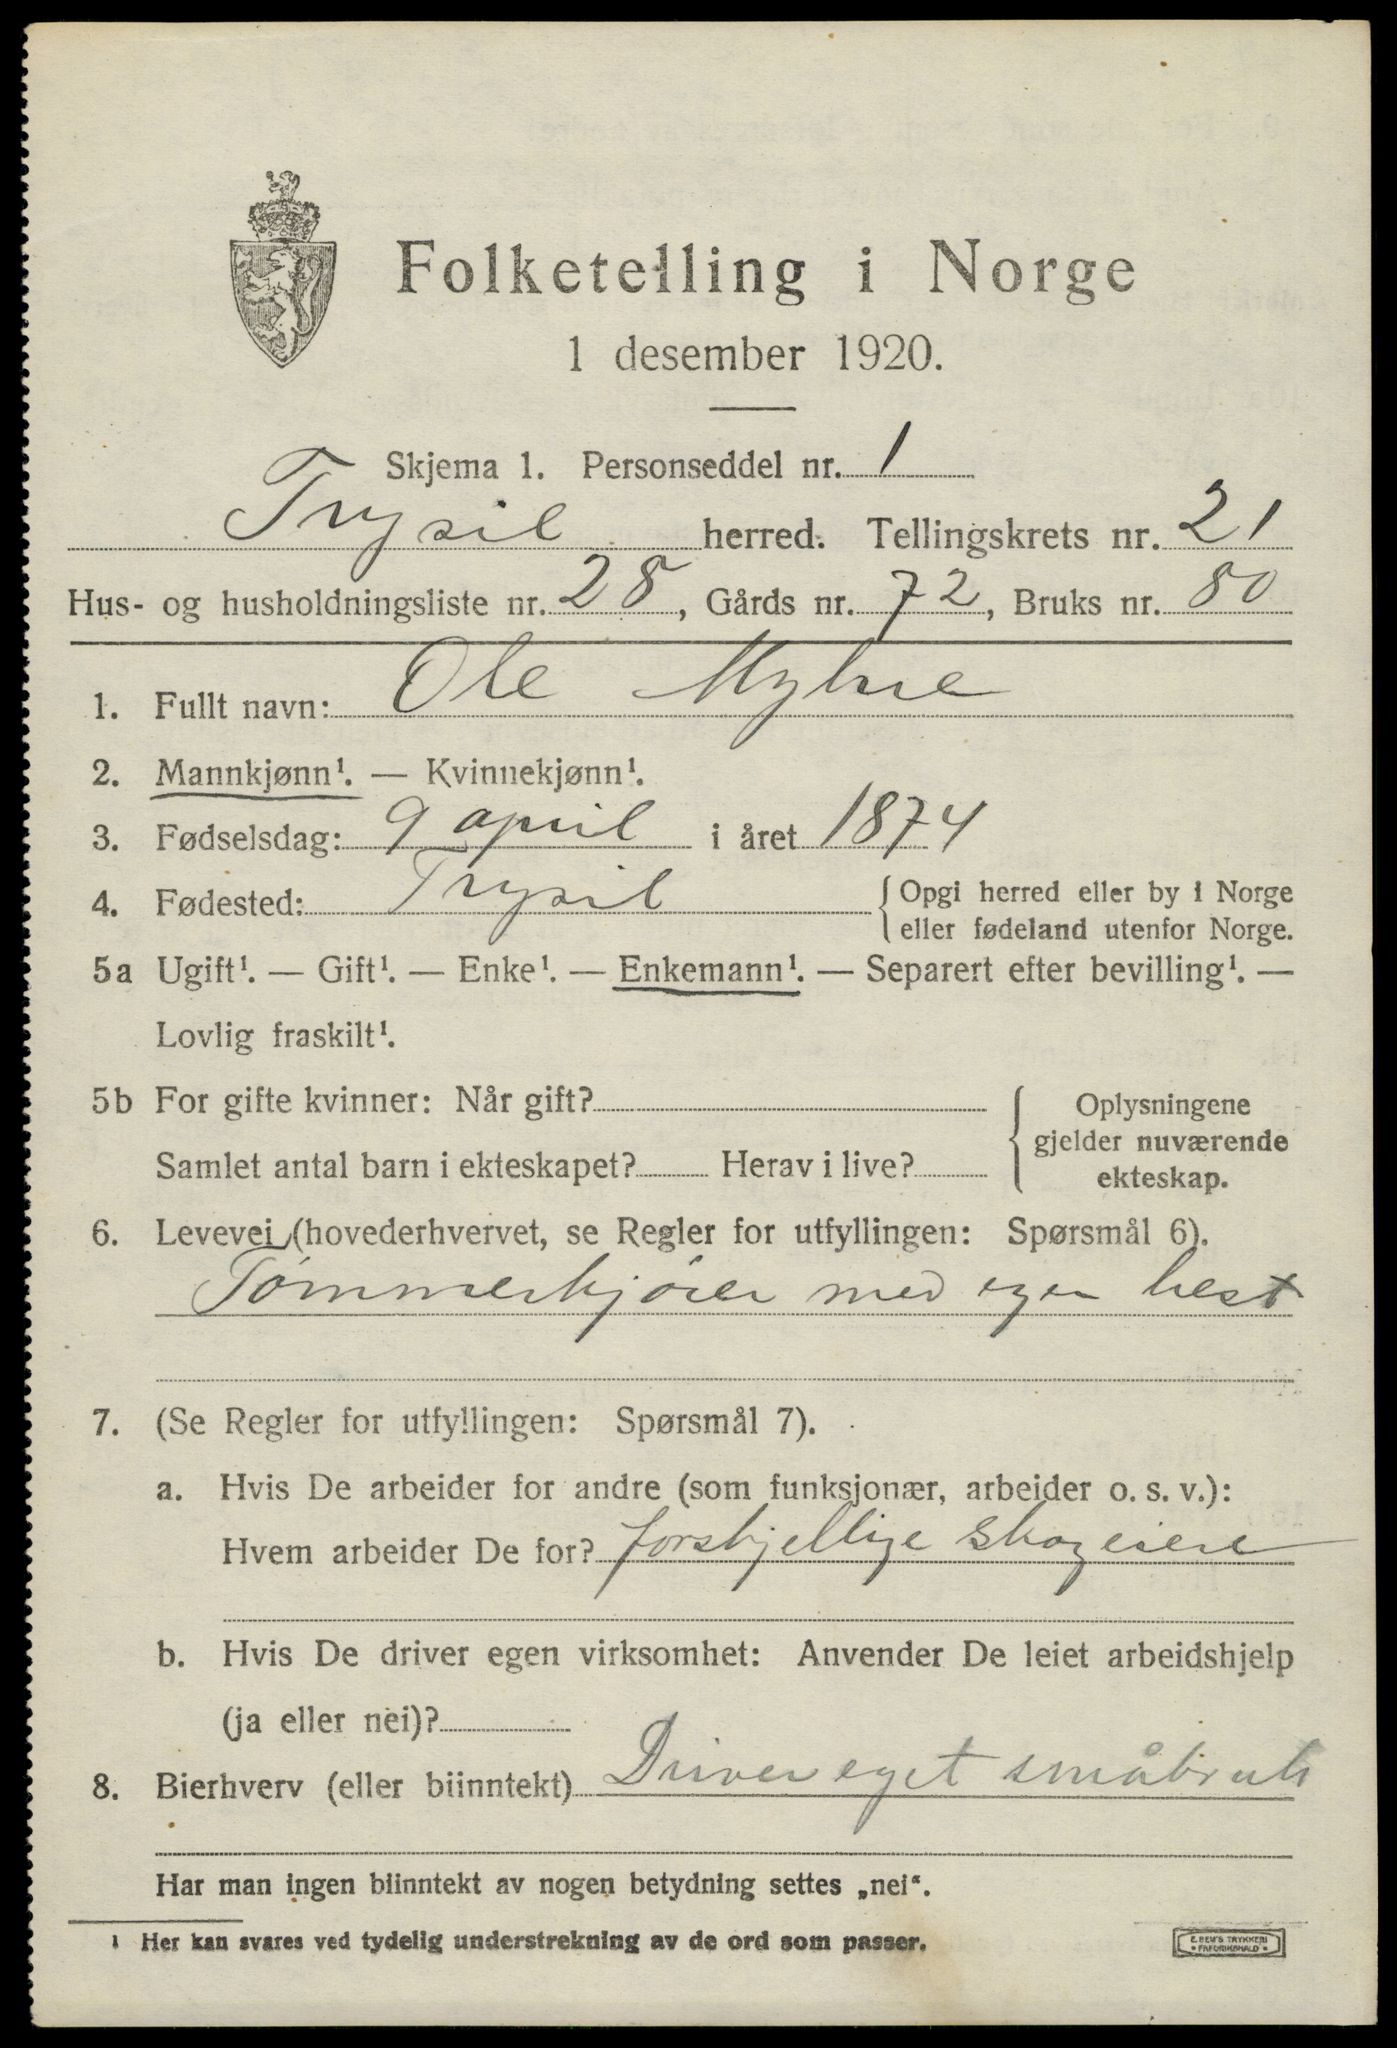 Folketelling i Norge
1 desember 1920.
Skjema 1. Personseddel nr. 1
Trysil herred. Tellingskrets nr. 21
Hus- og husholdningsliste nr. 28, Gårds nr. 72, Bruks nr. 80
1. Fullt navn: Ole Myhre
2. Mannkjønn¹. — Kvinnekjønn¹.
3. Fødselsdag: 9 april i året 1874
4. Fødested: Trysil { Opgi herred eller by i Norge
eller fødeland utenfor Norge.
5a Ugift¹. — Gift¹. — Enke¹. — Enkemann¹. — Separert efter bevilling¹. —
Lovlig fraskilt¹.
5b For gifte kvinner: Når gift?
Samlet antal barn i ekteskapet? Herav i live?
{ Oplysningene
gjelder nuværende
ekteskap.
6. Levevei (hovederhvervet, se Regler for utfyllingen: Spørsmål 6).
Tømmerkjører med egen hest
7. (Se Regler for utfyllingen: Spørsmål 7).
a. Hvis De arbeider for andre (som funksjonær, arbeider o. s. v.):
Hvem arbeider De for? forskjellige skogeiere
b. Hvis De driver egen virksomhet: Anvender De leiet arbeidshjelp
(ja eller nei)?
8. Bierhverv (eller biinntekt) Driver eget småbruk
Har man ingen biinntekt av nogen betydning settes „nei“.
¹ Her kan svares ved tydelig understrekning av de ord som passer.
E. SEM'S TRYKKERI
FREDRIKSHALD